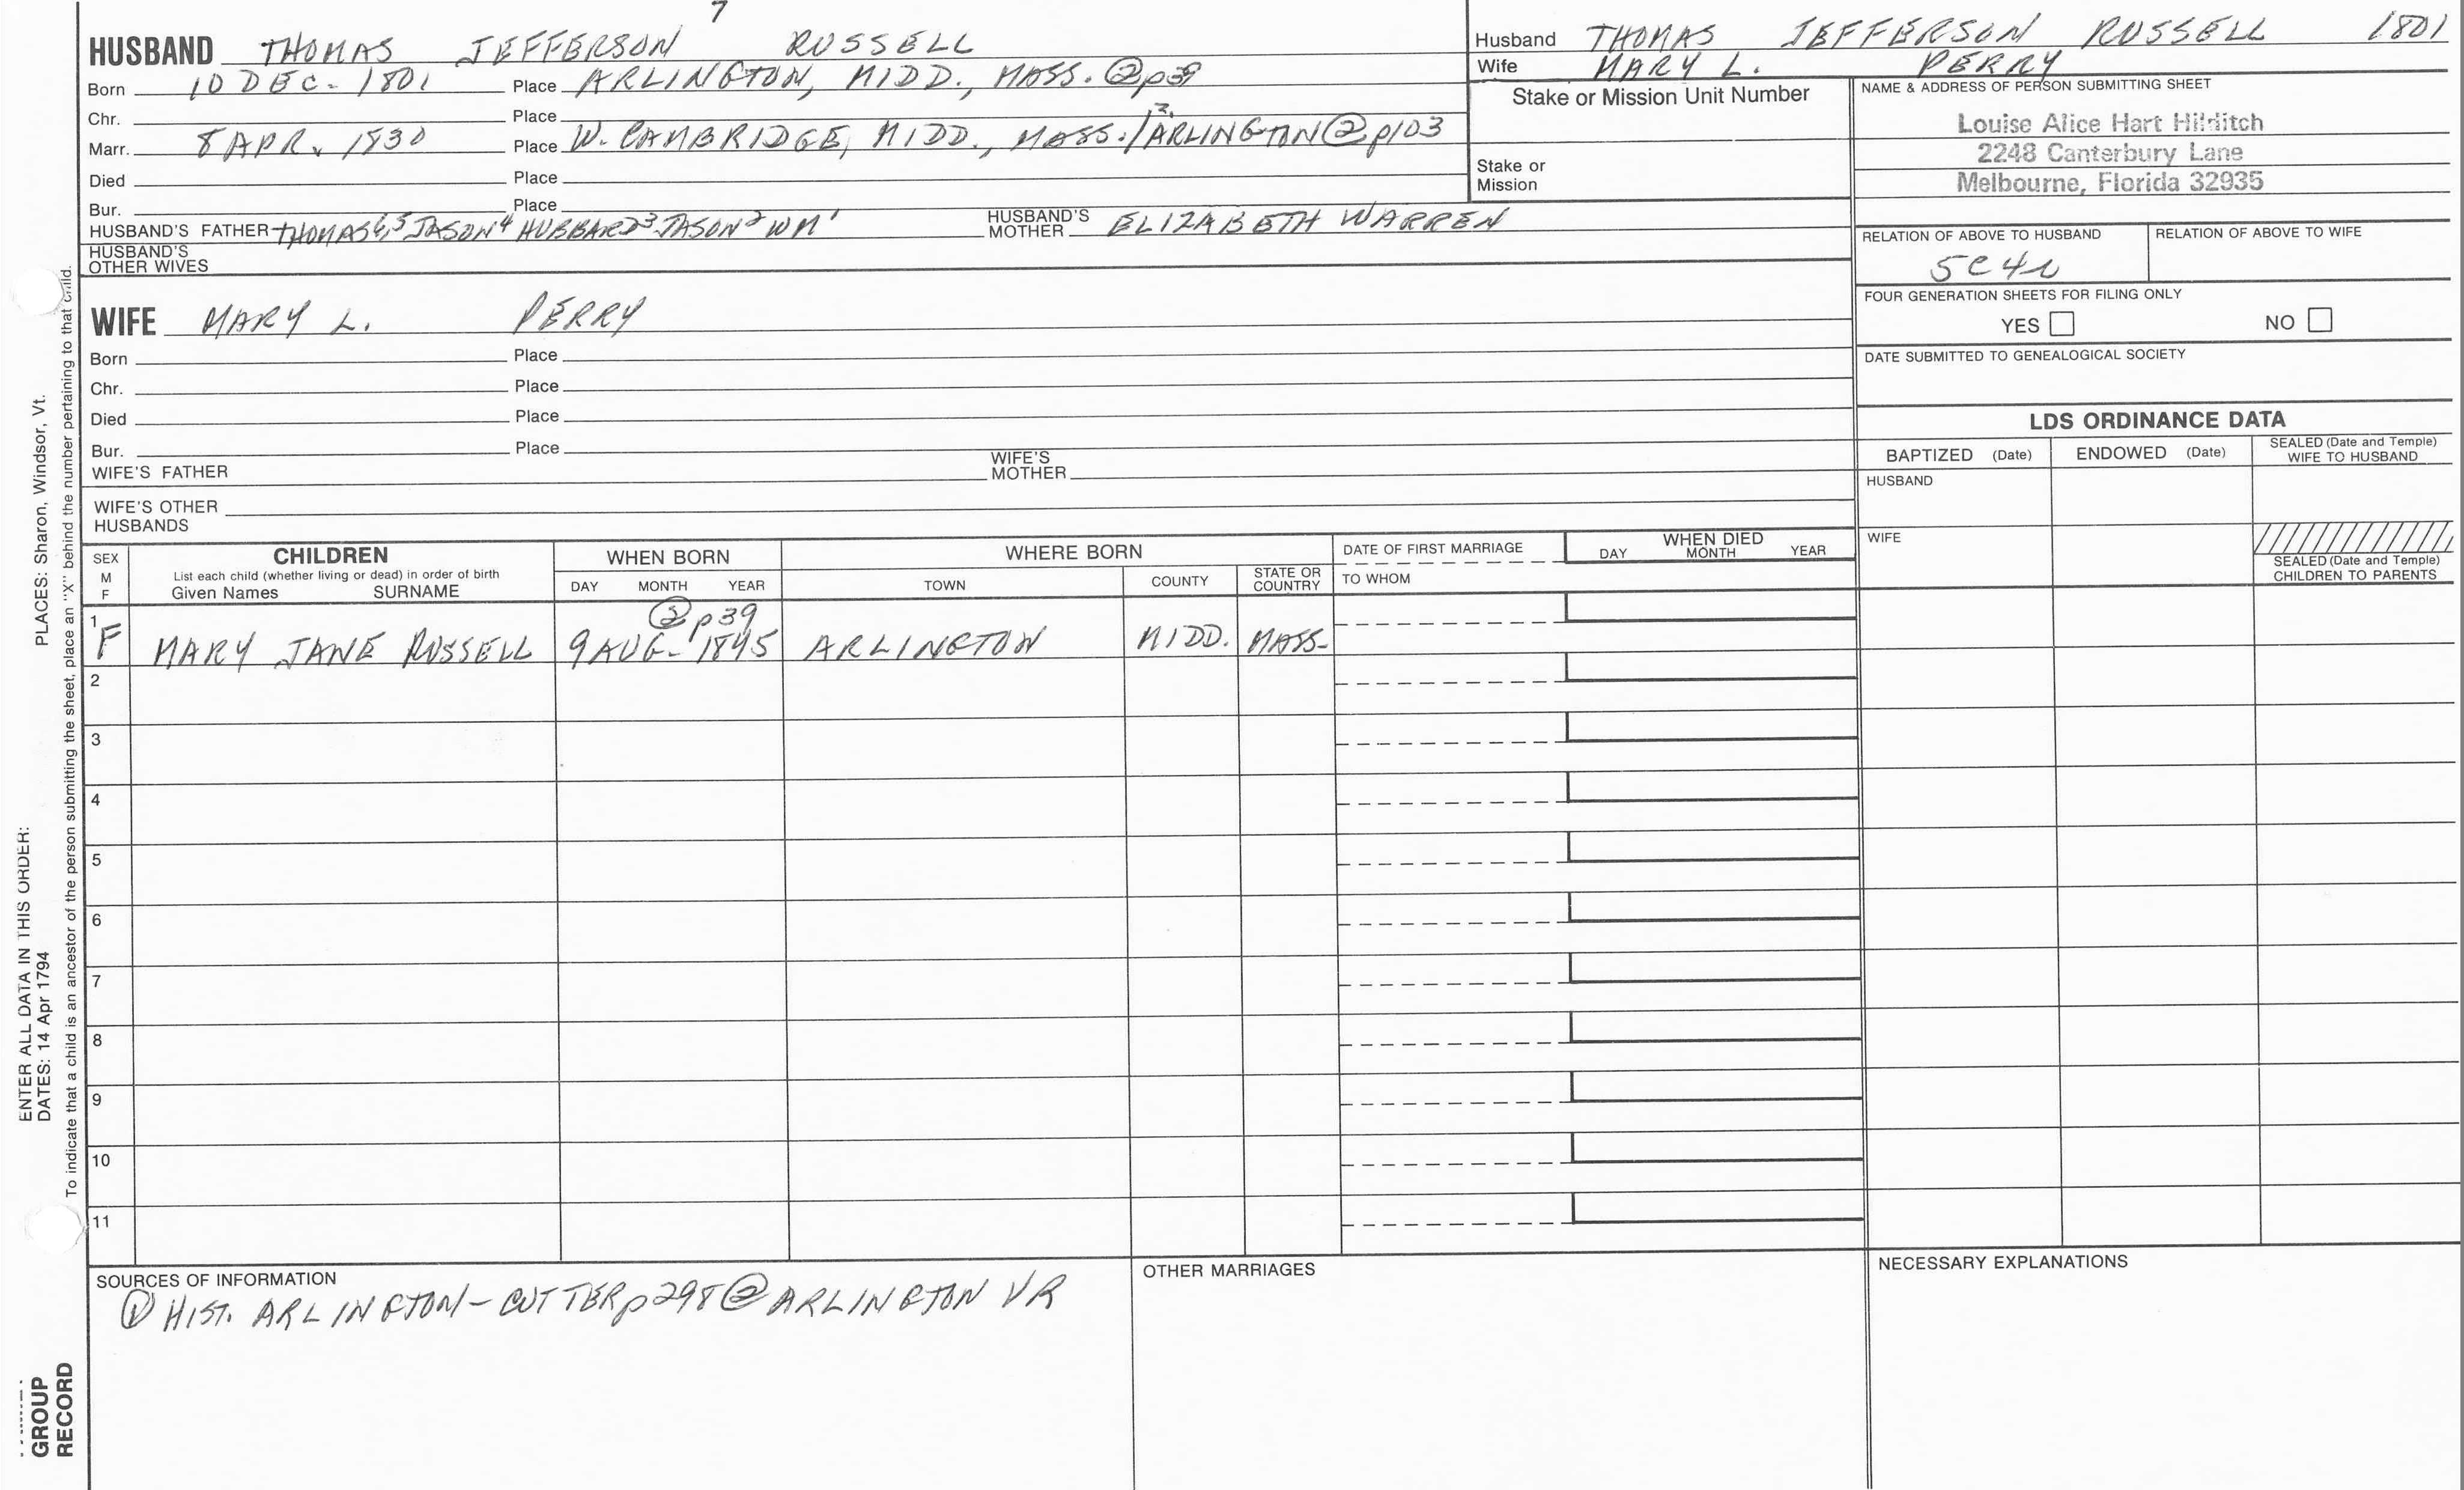 7
HUSBAND THOMAS JEFFERSON RUSSELL
Born 10 DEC. 1801 Place ARLINGTON, MIDD., MASS. ② p39
Chr. Place
Marr. 8 APR. 1830 Place W. CAMBRIDGE, MIDD., MASS./ARLINGTON ② p103
Died Place
Bur. Place
HUSBAND'S FATHER THOMAS6,5 JASON4 HUBBARD3 JASON2 WM1 HUSBAND'S MOTHER ELIZABETH WARREN
HUSBAND'S
OTHER WIVES
WIFE MARY L. PERRY
Born Place
Chr. Place
Died Place
Bur. Place
WIFE'S FATHER WIFE'S MOTHER
WIFE'S OTHER
HUSBANDS
Husband THOMAS JEFFERSON RUSSELL 1801
Wife MARY L. PERRY
Stake or Mission Unit Number
Stake or
Mission
NAME & ADDRESS OF PERSON SUBMITTING SHEET
Louise Alice Hart Hilditch
2248 Canterbury Lane
Melbourne, Florida 32935
RELATION OF ABOVE TO HUSBAND RELATION OF ABOVE TO WIFE
5C4r
FOUR GENERATION SHEETS FOR FILING ONLY
YES NO
DATE SUBMITTED TO GENEALOGICAL SOCIETY
LDS ORDINANCE DATA
BAPTIZED (Date) ENDOWED (Date) SEALED (Date and Temple)
WIFE TO HUSBAND
HUSBAND
WIFE
SEALED (Date and Temple)
CHILDREN TO PARENTS
SEX
M
F
CHILDREN
List each child (whether living or dead) in order of birth
Given Names SURNAME
WHEN BORN
DAY MONTH YEAR
WHERE BORN
TOWN COUNTY STATE OR
COUNTRY
DATE OF FIRST MARRIAGE
TO WHOM
WHEN DIED
DAY MONTH YEAR
② p39
1 F MARY JANE RUSSELL 9 AUG. 1845 ARLINGTON MIDD. MASS.
2
3
4
5
6
7
8
9
10
11
SOURCES OF INFORMATION
① HIST. ARLINGTON - CUTTER p298 ② ARLINGTON VR
OTHER MARRIAGES
NECESSARY EXPLANATIONS
ENTER ALL DATA IN THIS ORDER:
DATES: 14 Apr 1794 PLACES: Sharon, Windsor, Vt.
To indicate that a child is an ancestor of the person submitting the sheet, place an "X" behind the number pertaining to that child.
GROUP
RECORD